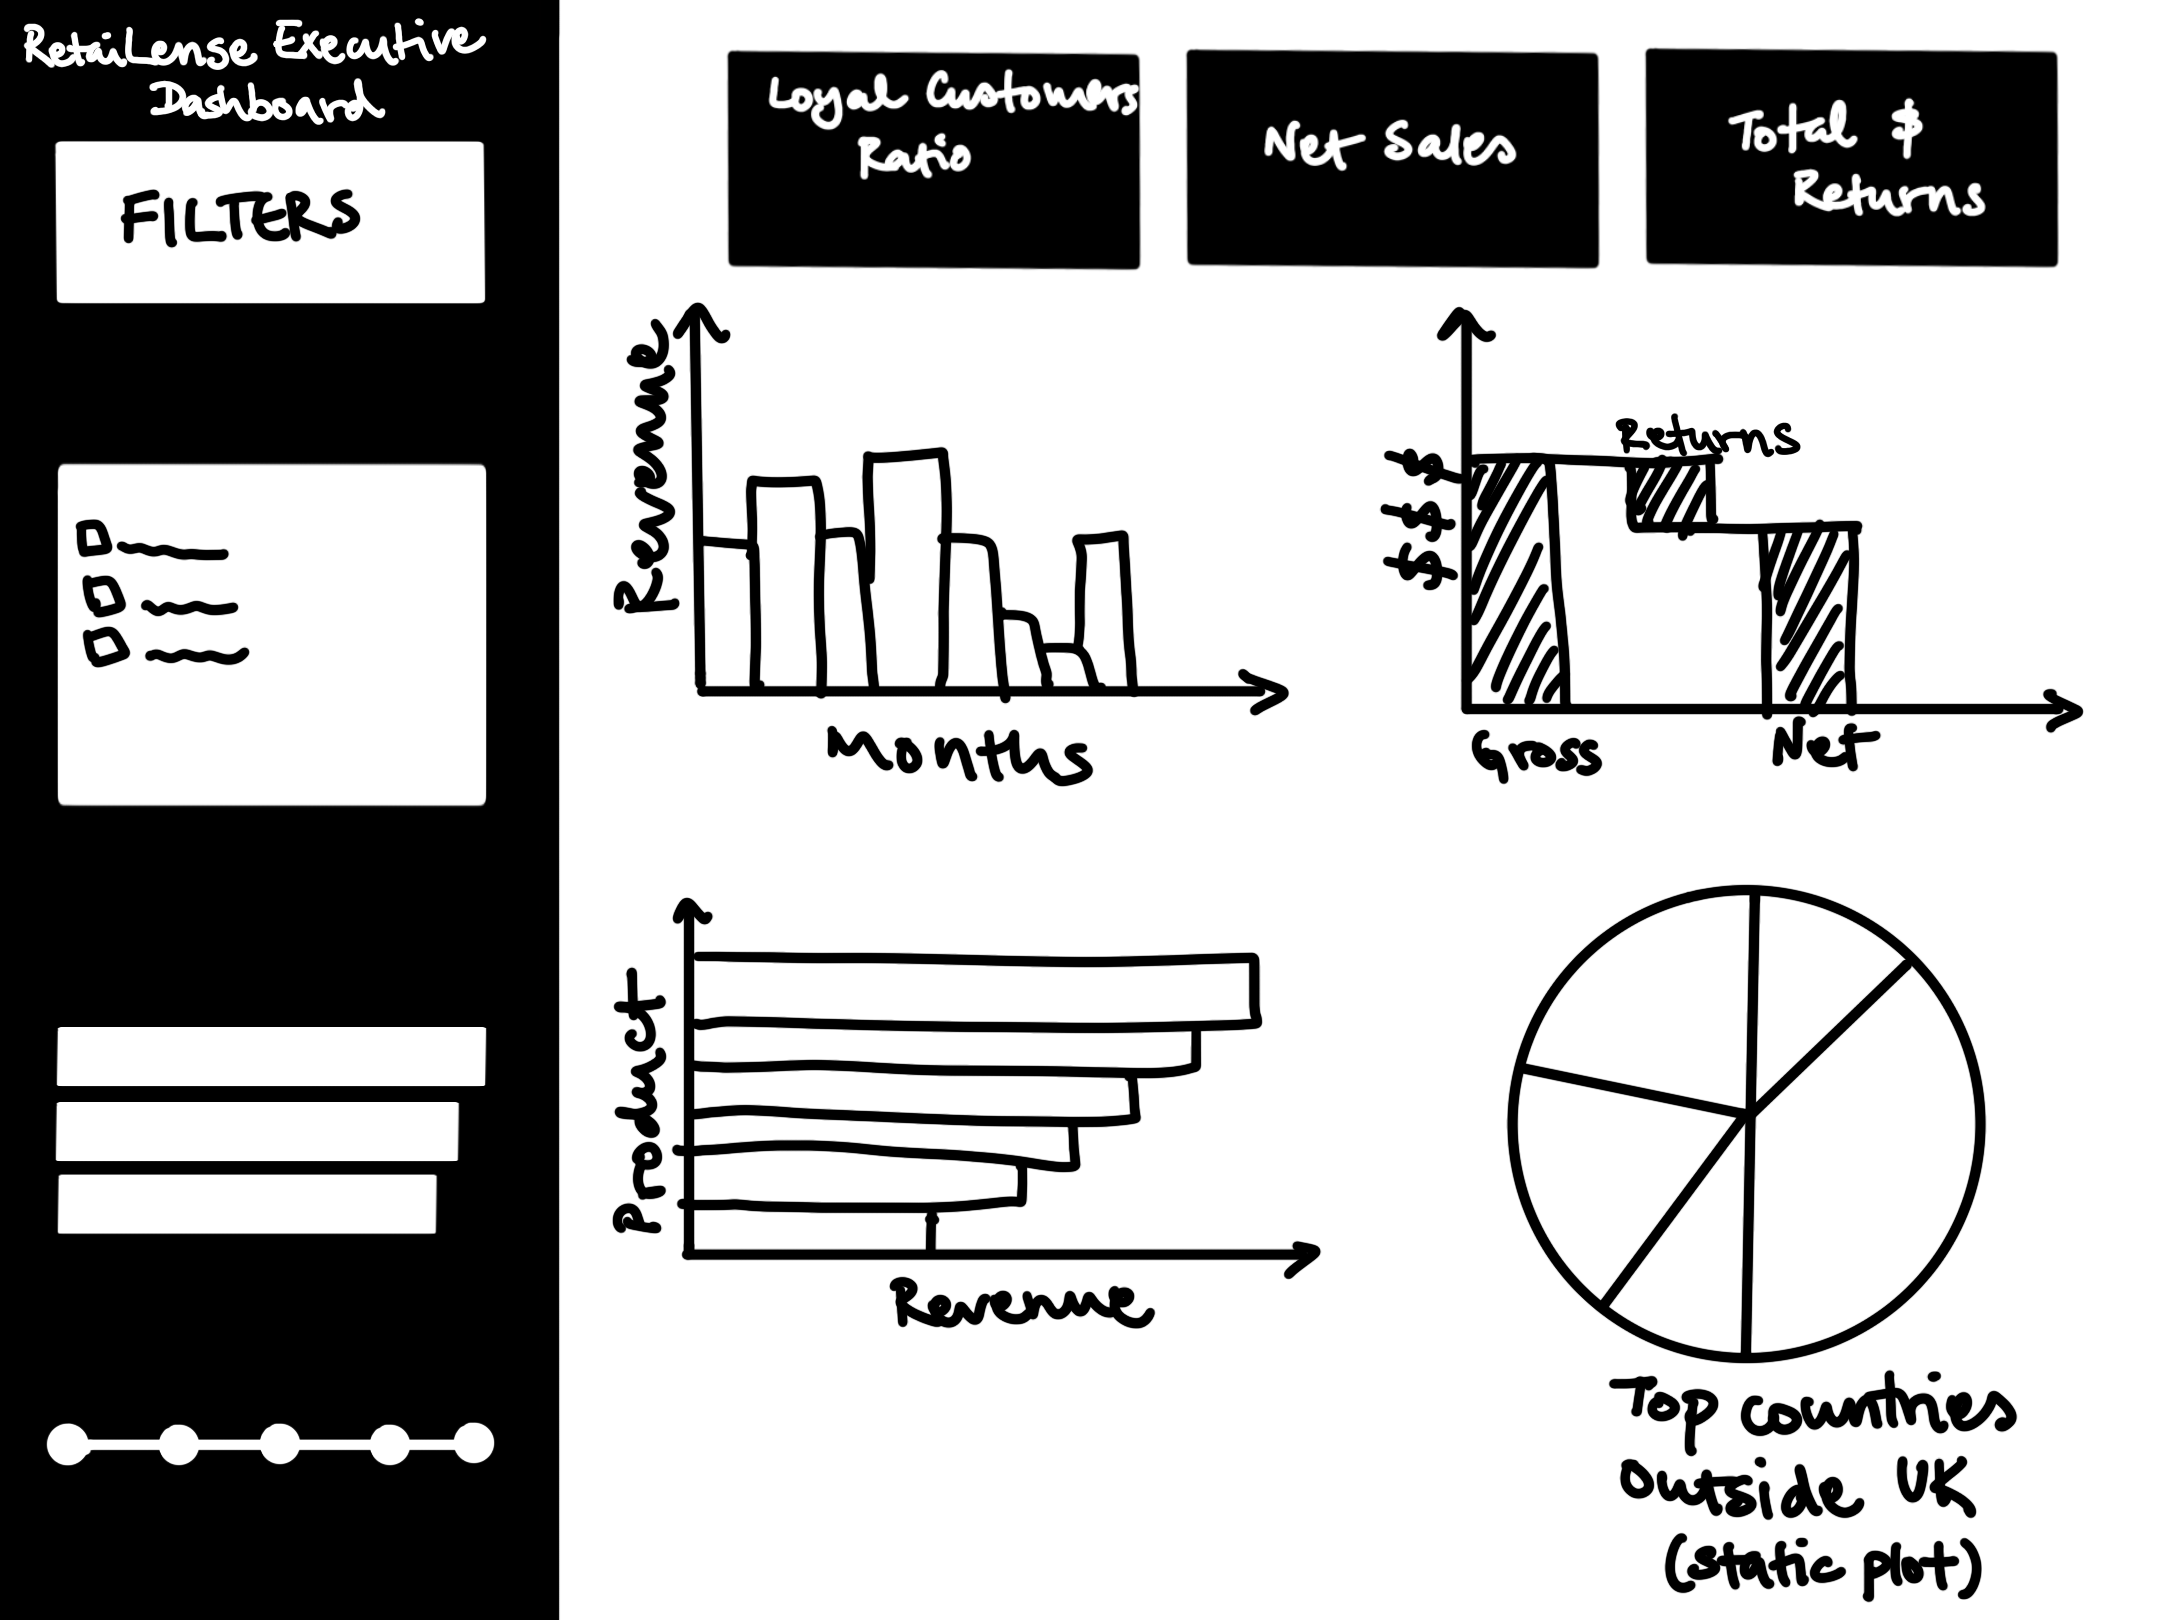 RetaiLense Executive
Dashboard
FILTERS
Loyal Customers
Ratio
Net Sales
Total $
Returns
Revenue
Months
$ $ $
Returns
Gross
Net
Product
Revenue
Top countries
Outside UK
(static plot)